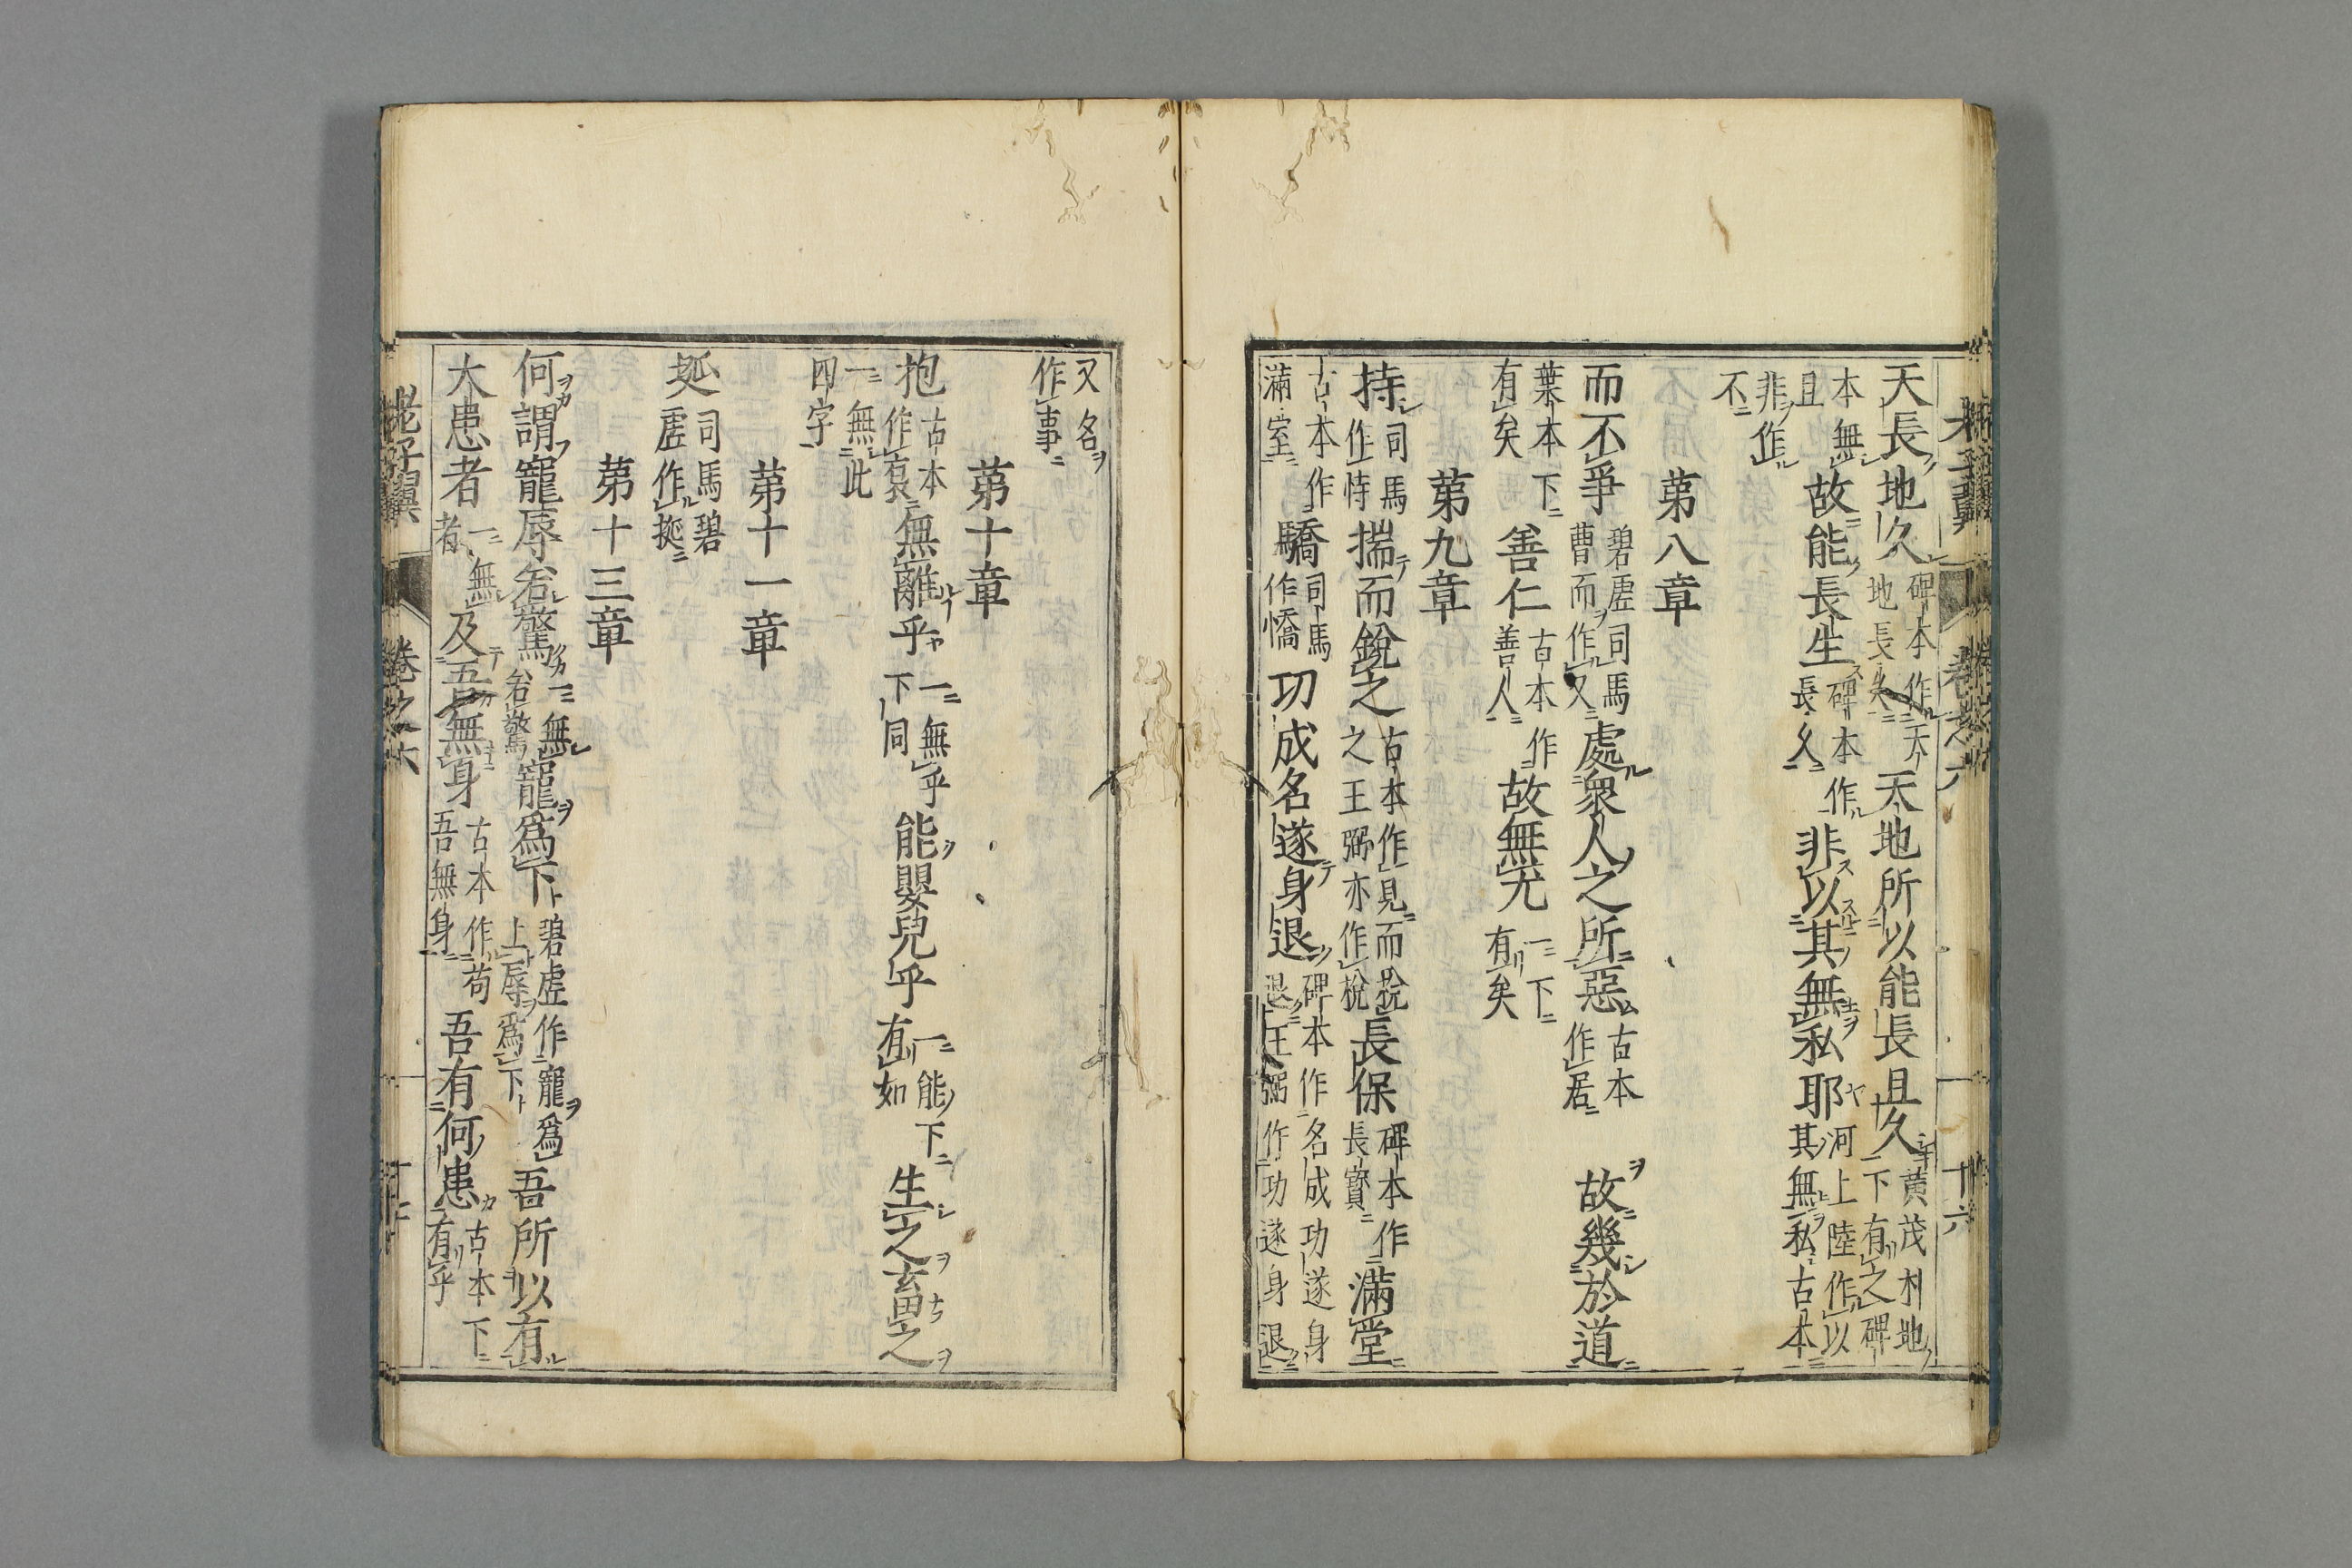 天長地久碑本作天地長久天地所以能長且久黃茂材地下有之碑
本無且故能長生碑本作長久非以其無私耶河上陸作以其無私古本
非作不
第八章
而不爭碧虛司馬曹而作又處衆人之所惡古本作居故幾於道
葉本下有矣善仁古本作善人故無尤一下有矣
第九章
持司馬作恃揣而銳之古本作見而挩之王弼亦作梲長保碑本作長寶滿堂
古本作滿室驕司馬作憍功成名遂身退碑本作名成功遂身退王弼作功遂身退
又名作事
第十章
抱古本作袌無離乎一無乎下同能嬰兒乎一能下有如生之畜之
一無此四字
第十一章
埏司馬碧虛作挻
第十三章
何謂寵辱若驚一無若驚寵爲下碧虛作寵爲上辱爲下吾所以有
大患者一無者及吾無身古本作苟吾無身吾有何患古本下有乎
老子翼 卷之六 十六
老子翼 卷之六